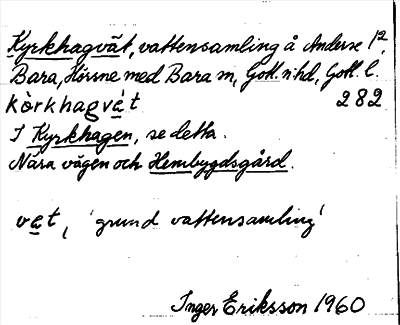 Kyrkhagvät, vattensamling å Anderse 1²,
Bara, Hörsne med Bara sn, Gotl. n: hd, Gotl. l.
kòrkhagvá̱t 282
I Kyrkhagen, se detta.
Nära vägen och Hembygdsgård.
va̱t, 'grund vattensamling'
Inger Eriksson 1960